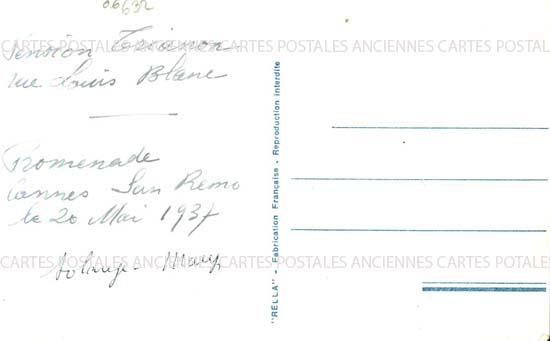 06632
Pension Trianon
CARTES POSTALES ANCIENNES CARTES POSTALES ANCIENNES CARTES POSTALES
rue Louis Blanc
Promenade
Cannes San Remo
le 20 Mai 1937
Solange - Mary
CARTES POSTALES ANCIENNES CARTES POSTALES ANCIENNES CARTES POTALES
"RELLA" - Fabrication Française - Reproduction interdite